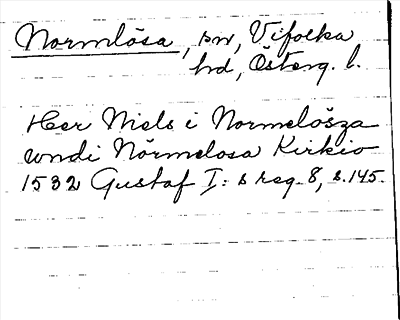 Normlösa, sn, Vifolka
hd, Österg. l.
Her Niels i Normelösza
wndi Nörmelosa Kirkio
1532 Gustaf I:s reg. 8, s. 145.